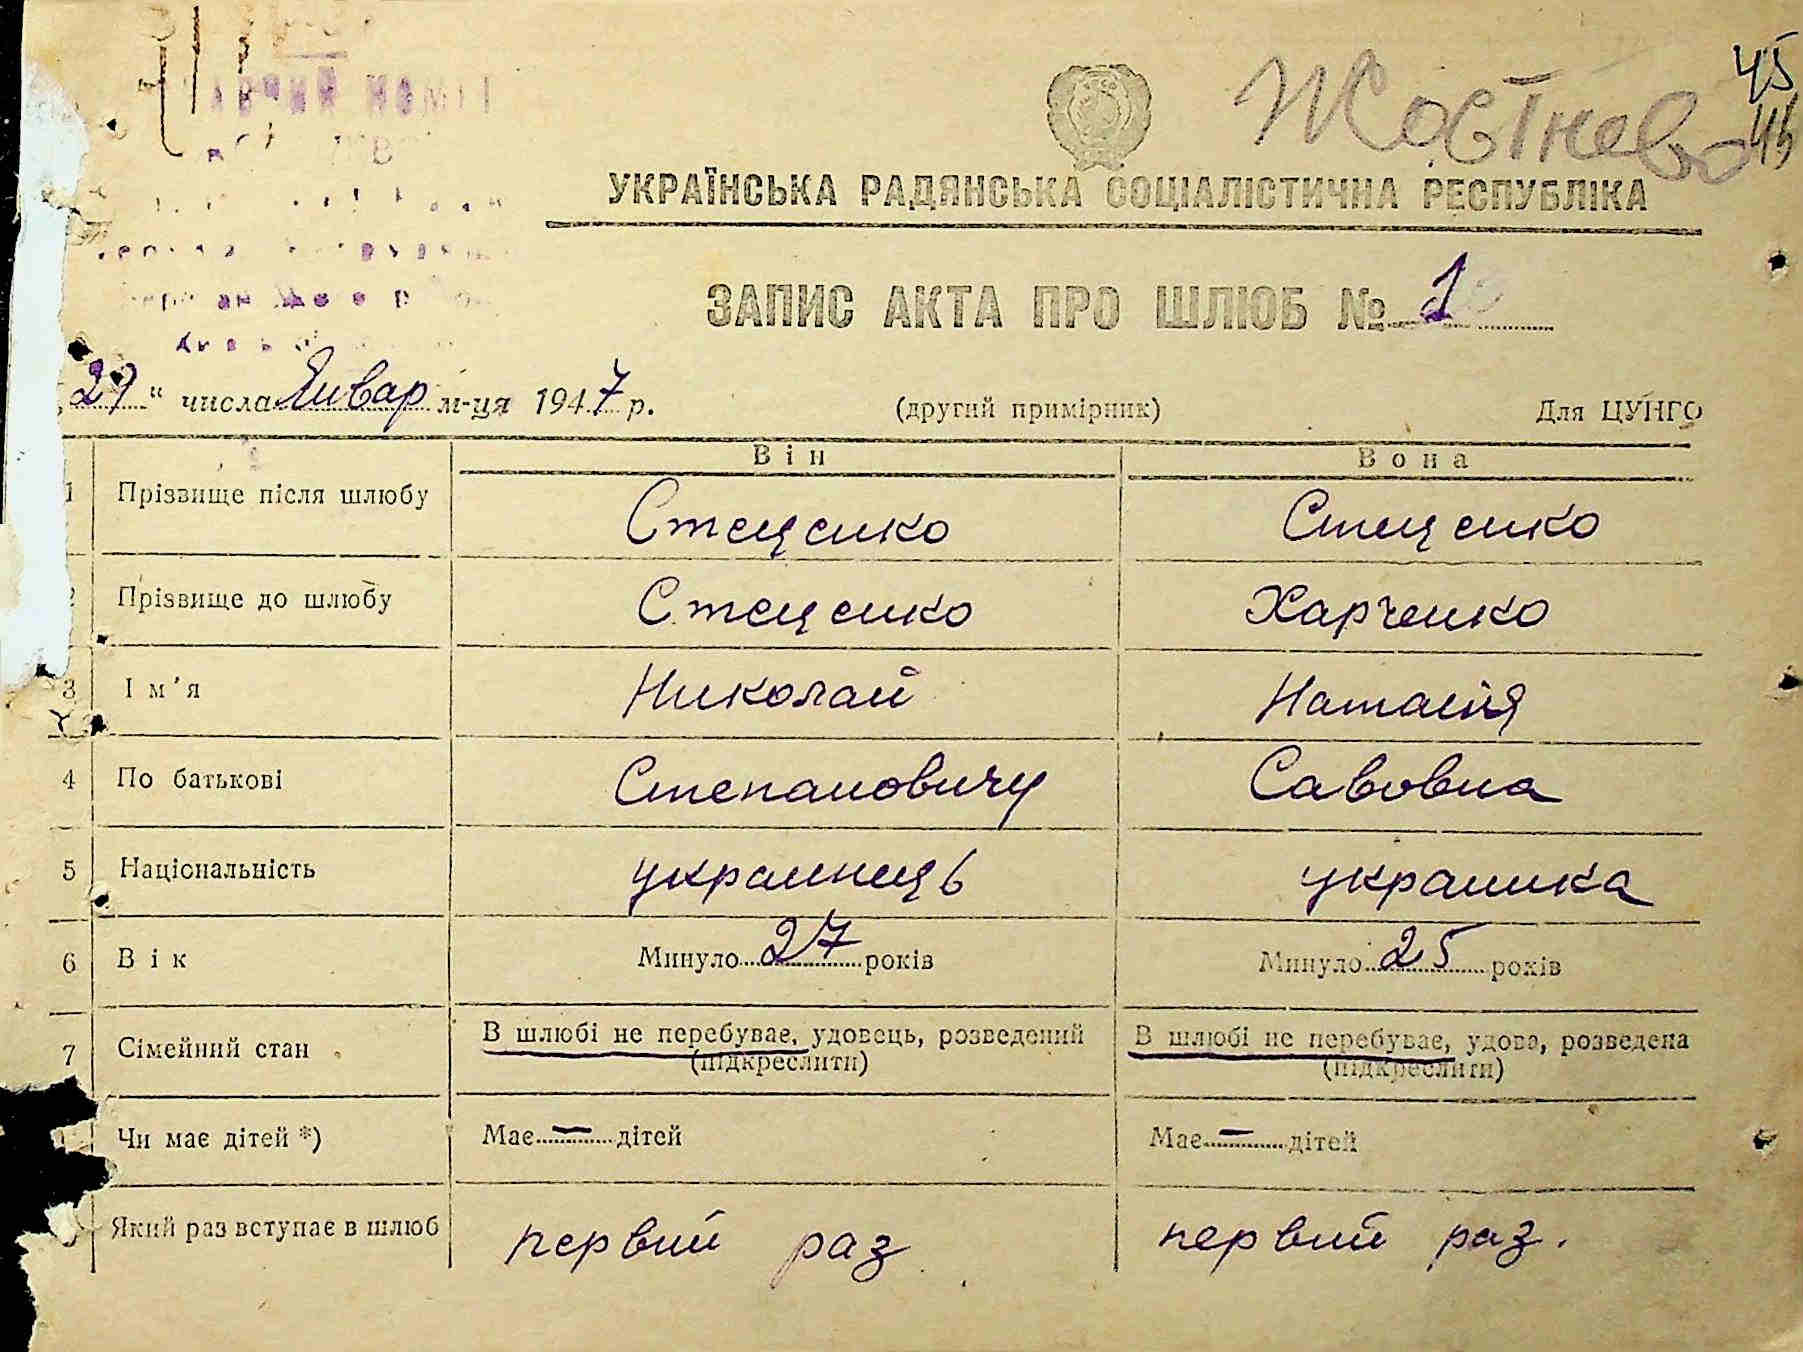 45
Жовтнево 45
УКРАЇНСЬКА РАДЯНСЬКА СОЦІАЛІСТИЧНА РЕСПУБЛІКА
ЗАПИС АКТА ПРО ШЛЮБ № 1
„29" числа Январ м-ця 1947 р. (другий примірник) Для ЦУНГО
Він Вона
1 Прізвище після шлюбу Стеценко Стеценко
2 Прізвище до шлюбу Стеценко Харченко
3 Ім'я Николай Наталія
4 По батькові Степановичу Савовна
5 Національність украинець украинка
6 Вік Минуло 27 років Минуло 25 років
7 Сімейний стан В шлюбі не перебуває, удовець, розведений В шлюбі не перебуває, удова, розведена
(підкреслити) (підкреслити)
Чи має дітей *) Має — дітей Має — дітей
Який раз вступає в шлюб первий раз первий раз.